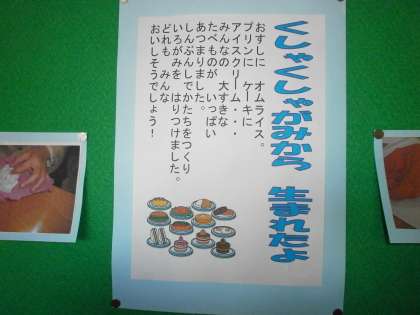 くしゃくしゃがみから 生まれたよ
おすしに オムライス。
プリンに ケーキに
アイスクリーム・・・
みんなの 大すきな
たべものが いっぱい
あつまりました。
しんぶんしでかたちをつくり
いろがみを はりつけました。
どれも みんな
おいしそうでしょう！